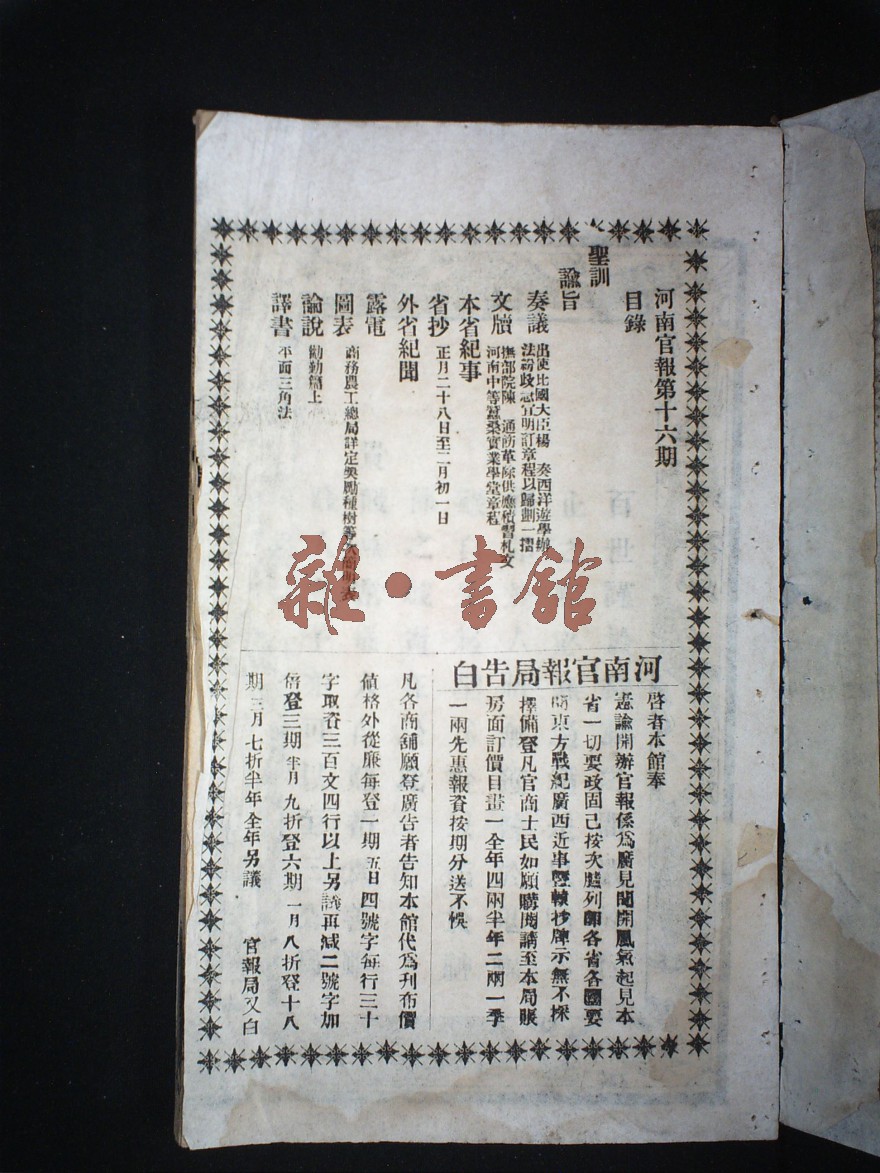 河南官報第十六期
目錄
聖訓
諭旨
奏議
出使比國大臣楊 奏西洋遊學辦
法紛歧急宜明訂章程以歸劃一摺
文牘
撫部院陳 通飭革除供應積習札文
河南中等蠶桑實業學堂章程
本省紀事
省抄 正月二十八日至二月初一日
外省紀聞
露電
圖表 商務農工總局詳定奬勵種樹等次簡明表
論說 勸勤篇上
譯書 平面三角法
河南官報局告白
啓者本館奉
憲諭開辦官報係爲廣見聞開風氣起見本
省一切要政固已按次臚列卽各省各國要
聞東方戰紀廣西近事暨轅抄牌示無不採
擇備登凡官商士民如願購閱請至本局賬
房面訂價目畫一全年四兩半年二兩一季
一兩先惠報資按期分送不悞
凡各商舖願登廣告者告知本館代爲刋布價
値格外從廉每登一期五日四號字每行三十
字取資三百文四行以上另議再減二號字加
倍登三期半月九折登六期一月八折登十八
期三月七折半年全年另議 官報局又白
雜·書館